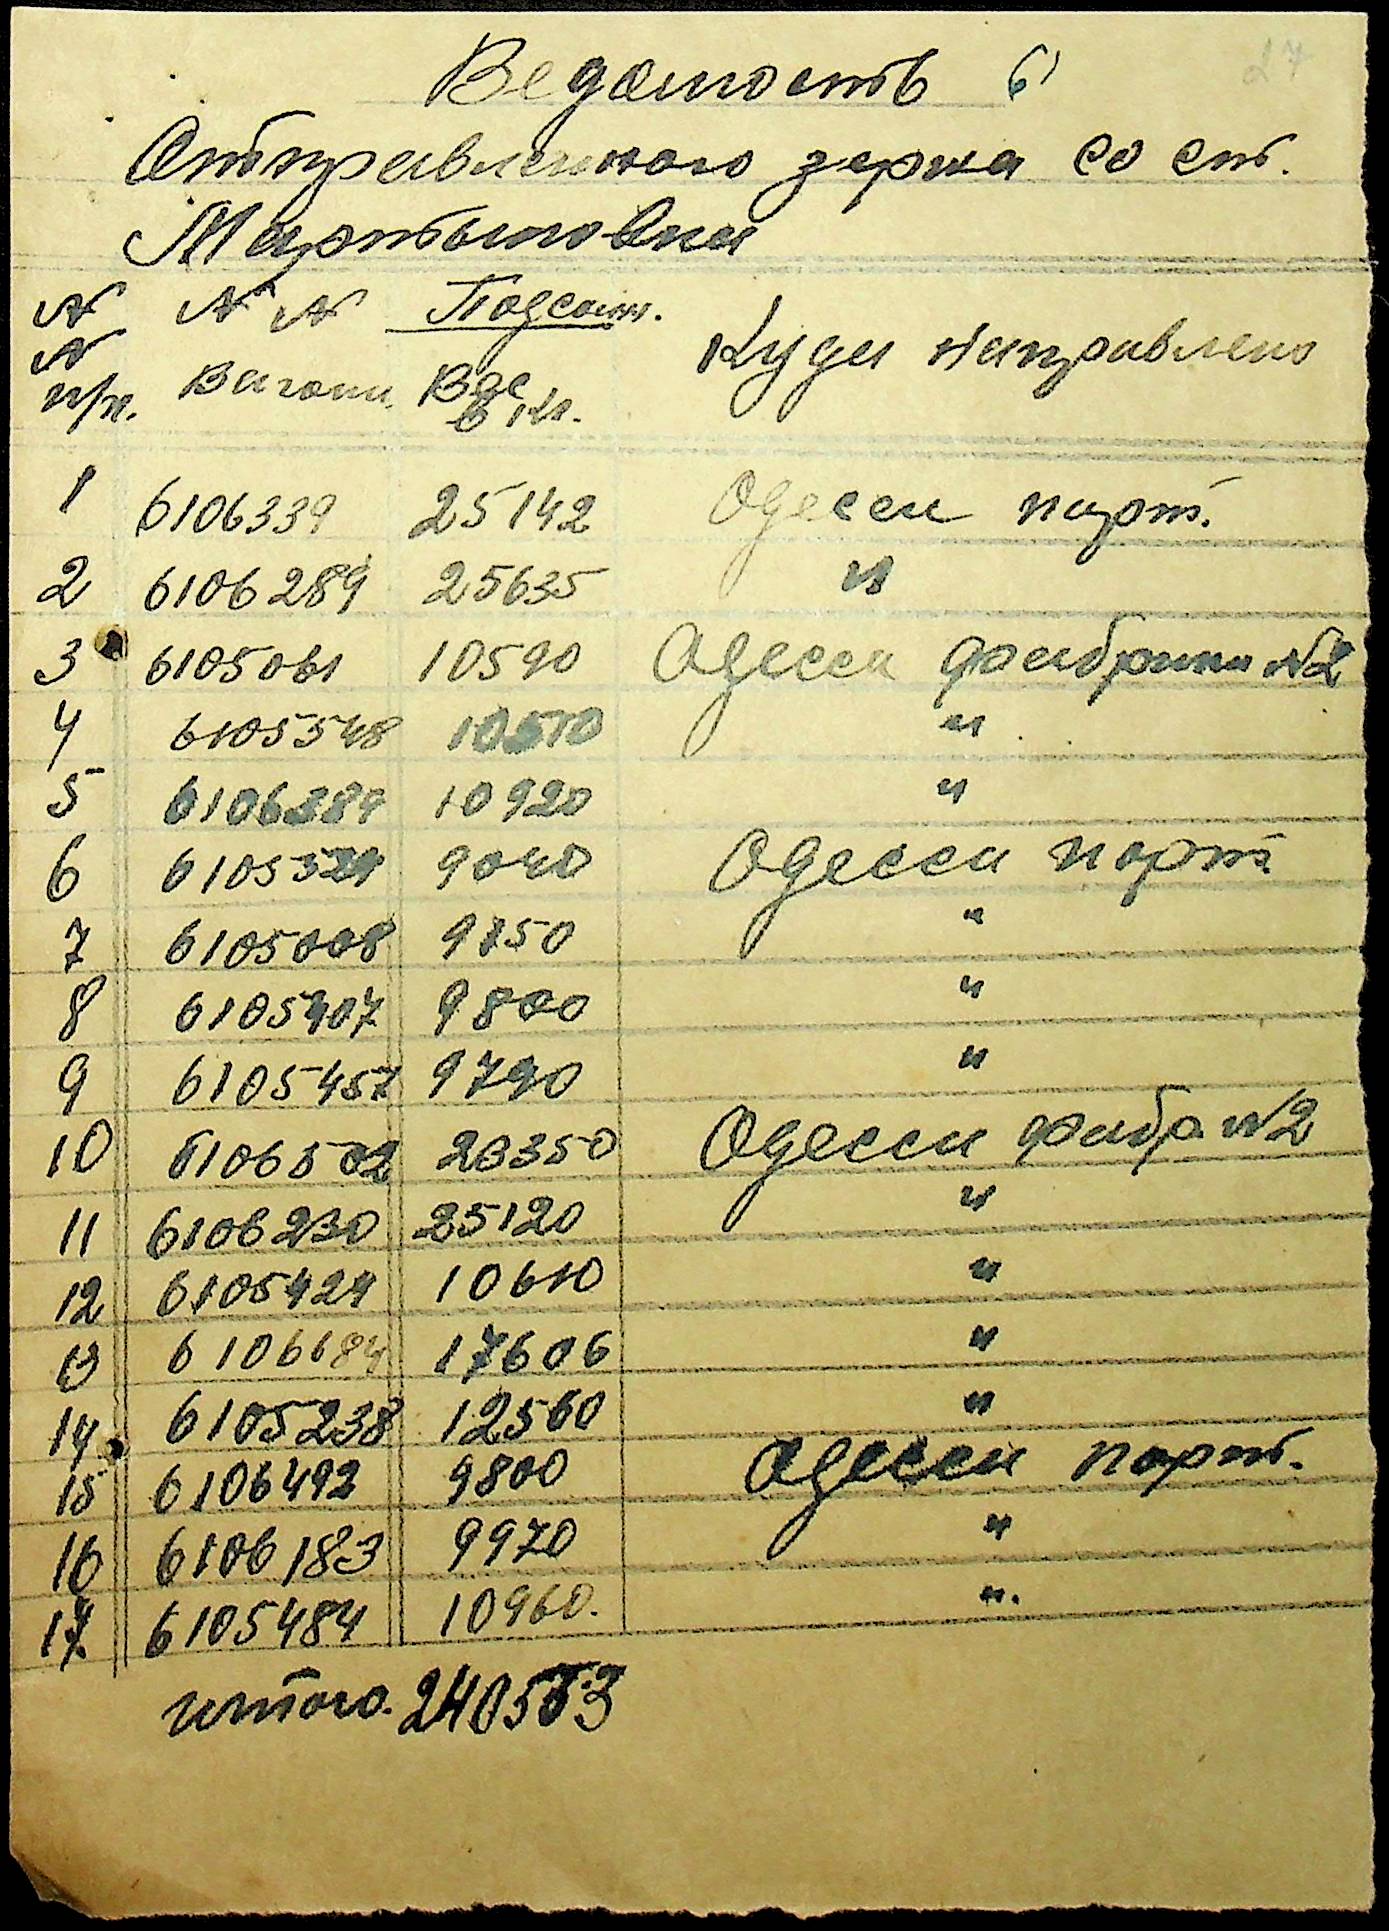 Ведомость б)
27
Отправленного зерна со ст.
Мартыновка
N N п/п. N N Вагона. Подсолн. Вес в кг. Куда направлено
1 6106339 25142 Одесса порт.
2 6106289 25635 "
3 6105061 10590 Одесса фабрика N2
4 6105548 10570 "
5 6106389 10920 "
6 6105529 9040 Одесса порт.
7 6105008 9150 "
8 6105407 9800 "
9 6105457 9790 "
10 6106502 23350 Одесса фабр. N2
11 6106230 25120 "
12 6105424 10610 "
13 6106184 17606 "
14 6105238 12560 "
15 6106492 9800 Одесса порт.
16 6106183 9970 "
17 6105484 10960. ".
итого. 240573